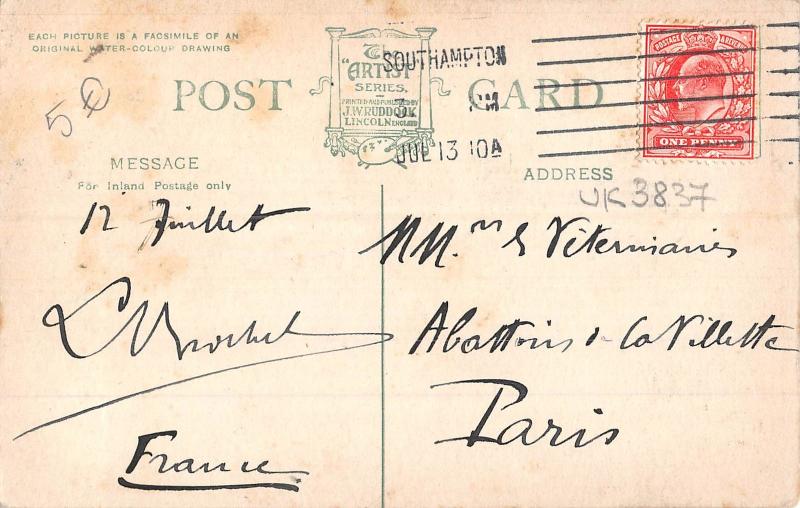 EACH PICTURE IS A FACSIMILE OF AN
ORIGINAL WATER-COLOUR DRAWING
The
"ARTIST"
SERIES.
PRINTED AND PUBLISHED BY
J.W. RUDDOCK
LINCOLN ENGLAND
POST CARD
SOUTHAMPTON
PM
JUL 13 10A
POSTAGE REVENUE
ONE PENNY
5
MESSAGE
For Inland Postage only
ADDRESS
UK3837
12 Juillet
Brochet
France
Vétérinaires
Abattoirs de La Villette
Paris